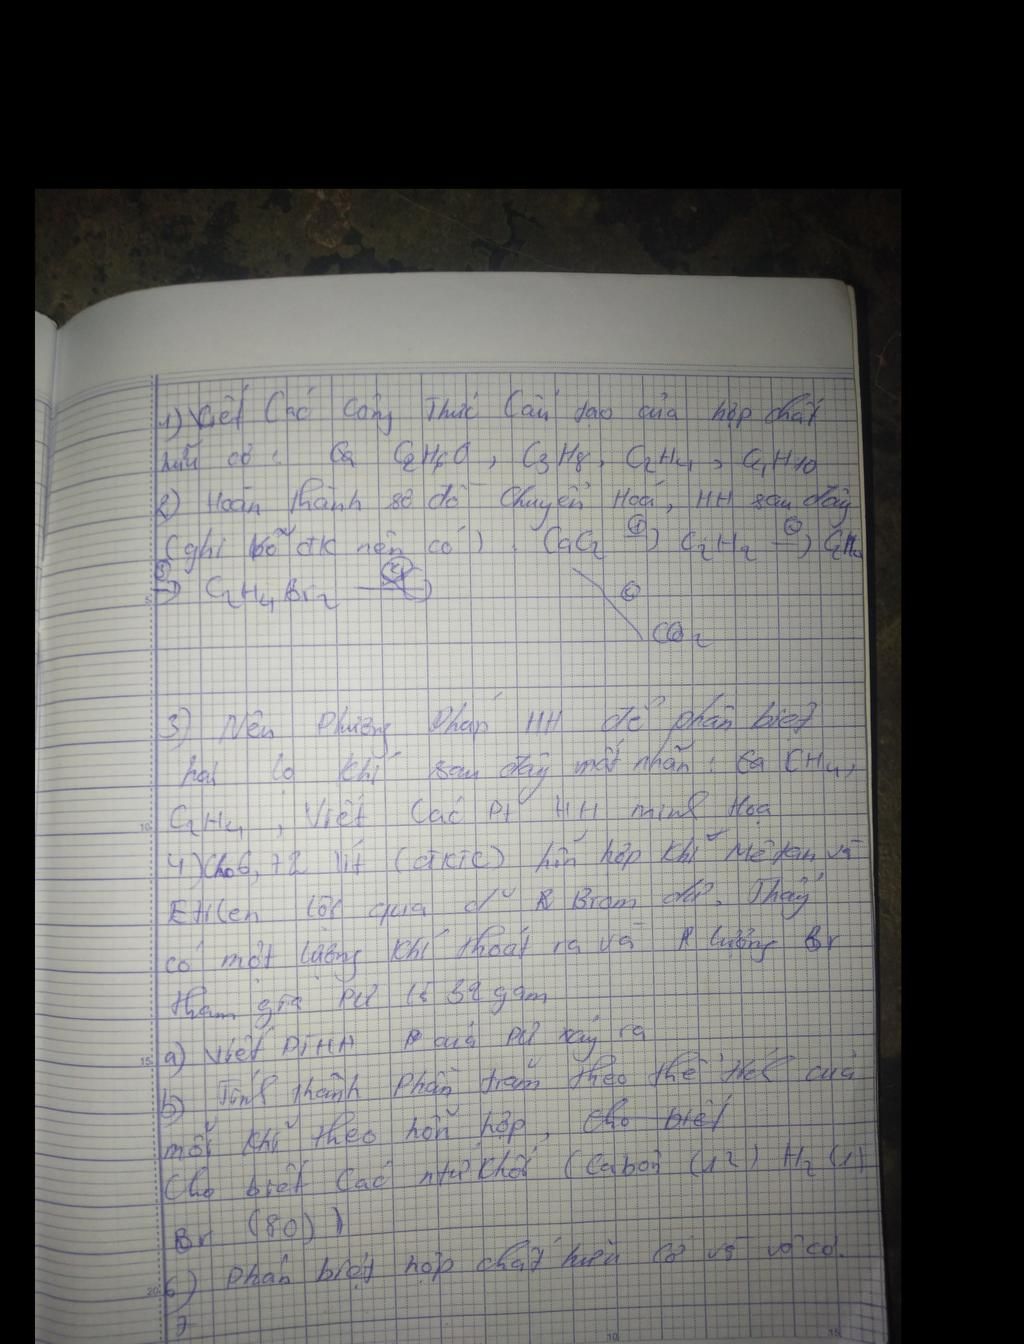 1) Viết Các Công Thức Cấu tạo của hợp chất
hữu cơ : Ca C2H6O, C3H8, C2H4, C4H10
2) Hoàn thành sơ đồ Chuyển Hoá, HH sau đây
(ghi rõ đk nến có) . CaC2 ①→ C2H2 ②→ C2H4
③→ C2H4Br2
④
CO2
3) Nêu Phương Pháp HH để phân biệt
hai lọ khí sau đây mất nhãn : Ca CH4,
C2H4 , Viết Các Pt HH minh Hoạ
4) Cho 6,72 lít (ĐKTC) hỗn hợp khí Mêtan và
Etilen lội qua d² Brom dư. Thấy
có một lượng khí thoát ra và lượng Br
tham gia PƯ là 32 gam
a) Viết PTHH của PƯ xảy ra
b) Tính thành Phần trăm theo thể tích của
mỗi khí theo hỗn hợp, cho biết
Cho biết Các ntử khối (Cabon (12) H2 (1)
Br (80) )
6) Phân biệt hợp chất hữu cơ và vô cơ.
7